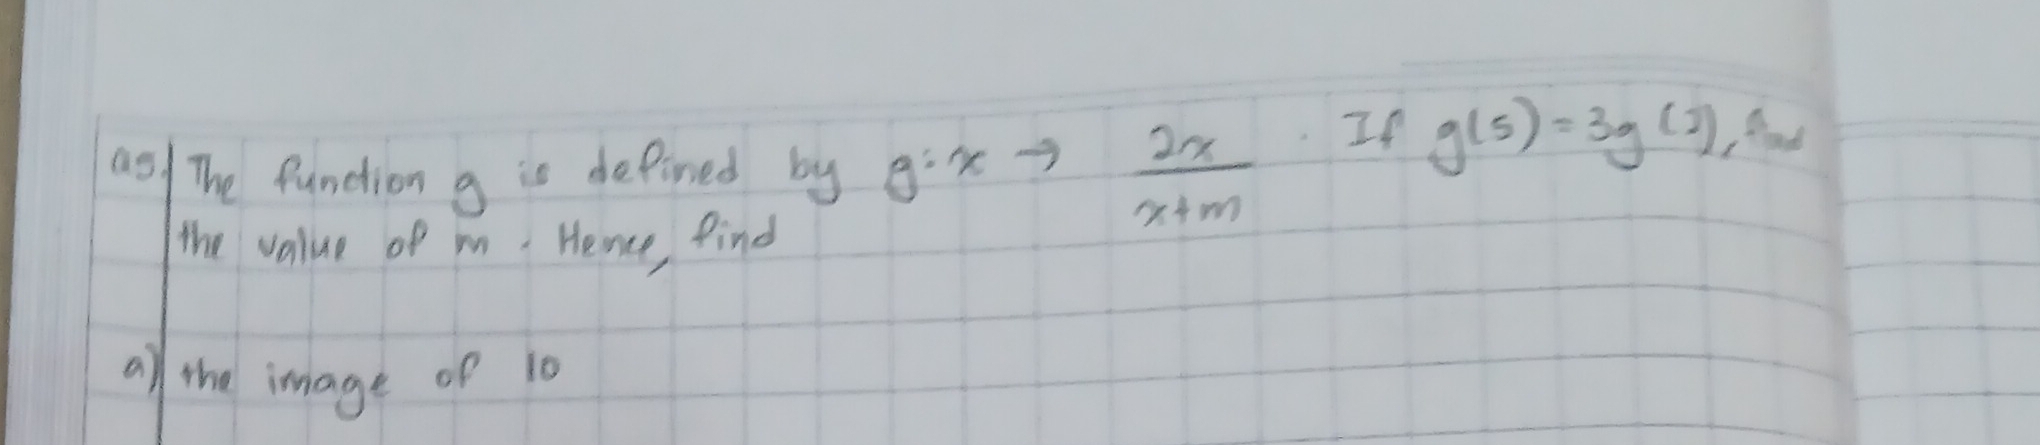 as) The function g is defined by g:x → 2x/x+m . If g(5) = 3g(2), find
the value of m . Hence, find
a) the image of 10